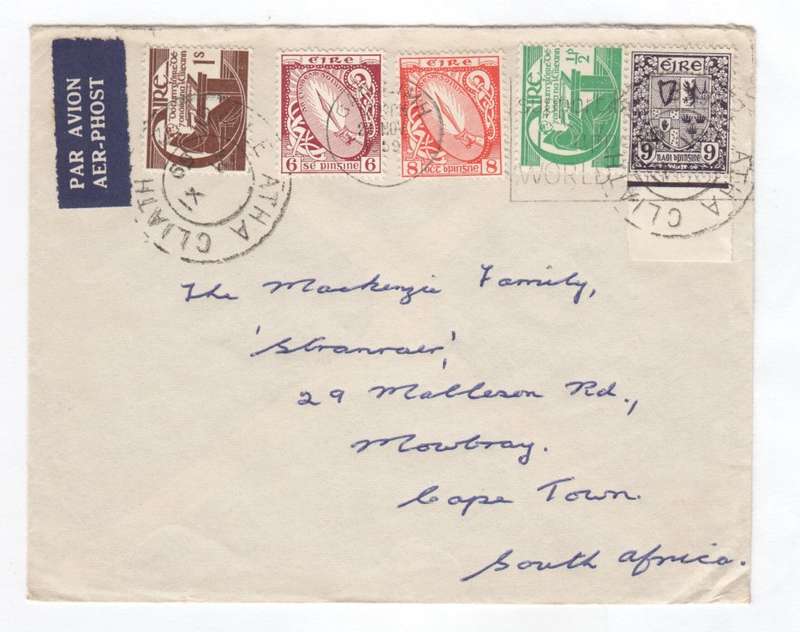 PAR AVION
AER-PHOST
1s
ÉIRE
6 6
SÉ PINGINE
ÉIRE
8 8
OCT PINGINE
½p
ÉIRE
ÉIRE
9 9
NAOI PINGINE
ATHA CLIATH
WORLD
ATHA CLIATH
The Mackenzie Family,
'Stranraer',
29 Malleson Rd.,
Mowbray.
Cape Town.
South Africa.